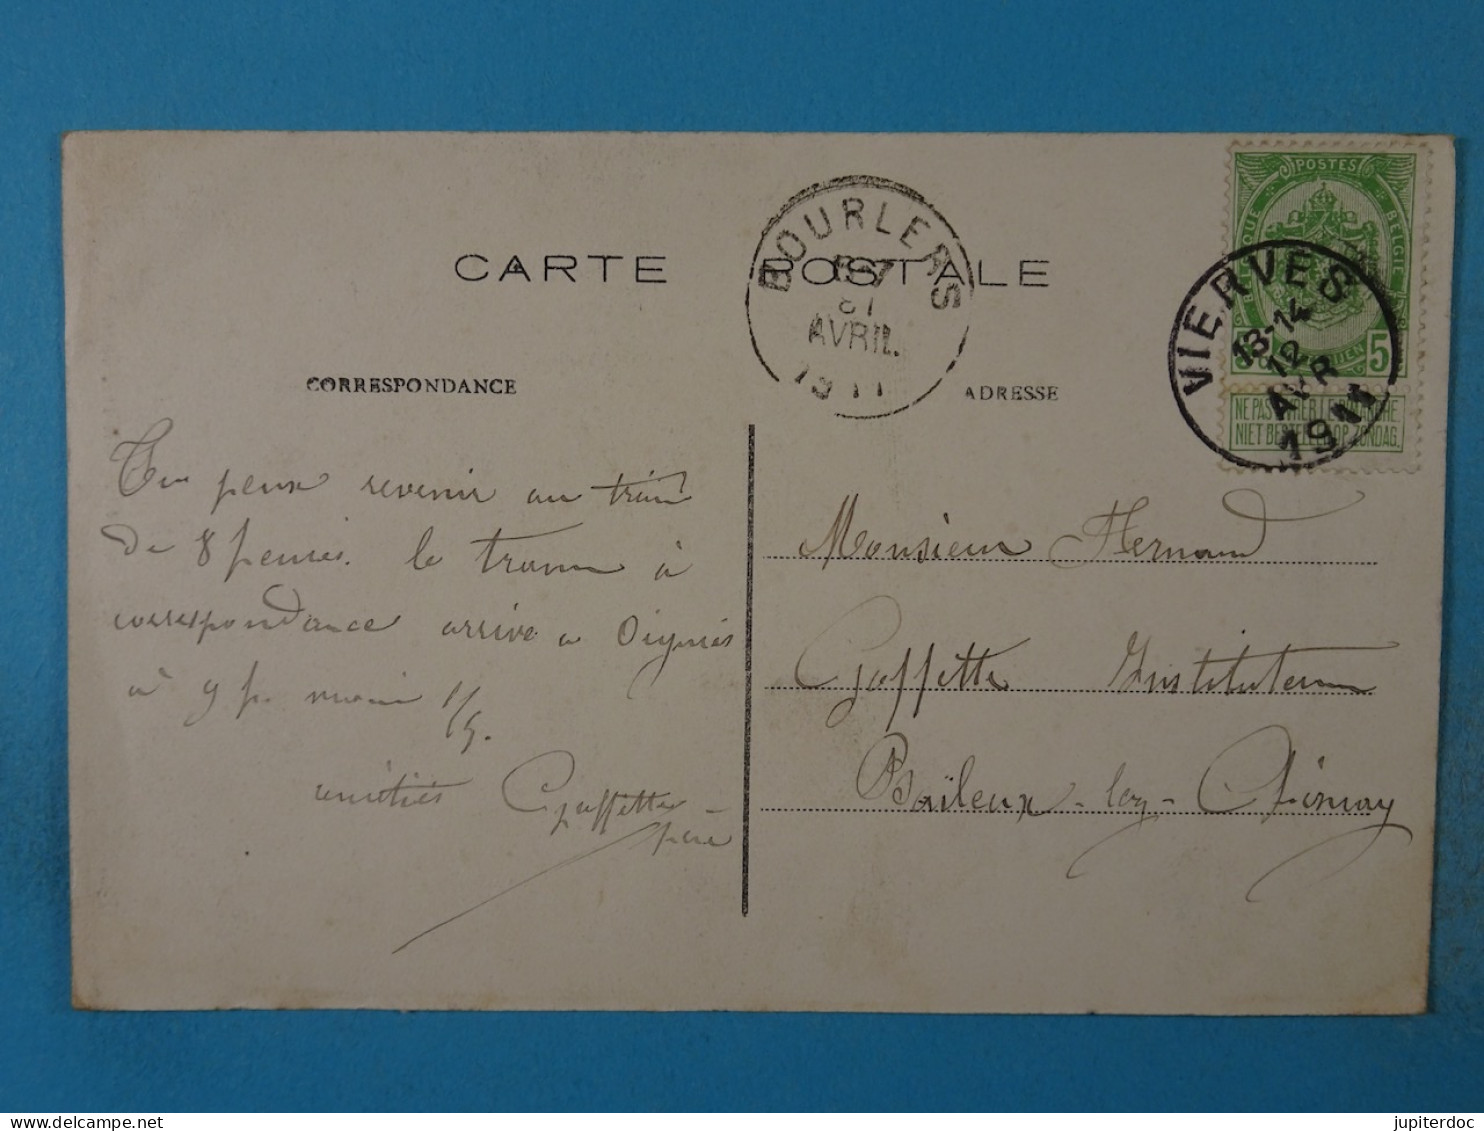 CARTE POSTALE
CORRESPONDANCE
ADRESSE
BOURLERS
AVRIL
1911
POSTES
BELGIQUE
BELGIE
5
NE PAS LIVRER LE DIMANCHE
NIET BESTELLEN OP ZONDAG.
VIERVES
13-14
12
AVR
1911
Tu peux revenir au train
de 8 heures. le tram à
correspondance arrive a Oignies
à 9 h. moins 1/5.
amitiés Gaffette
père
Monsieur Fernand
Gaffette Instituteur
Baileux-lez-Chimay
jupiterdoc